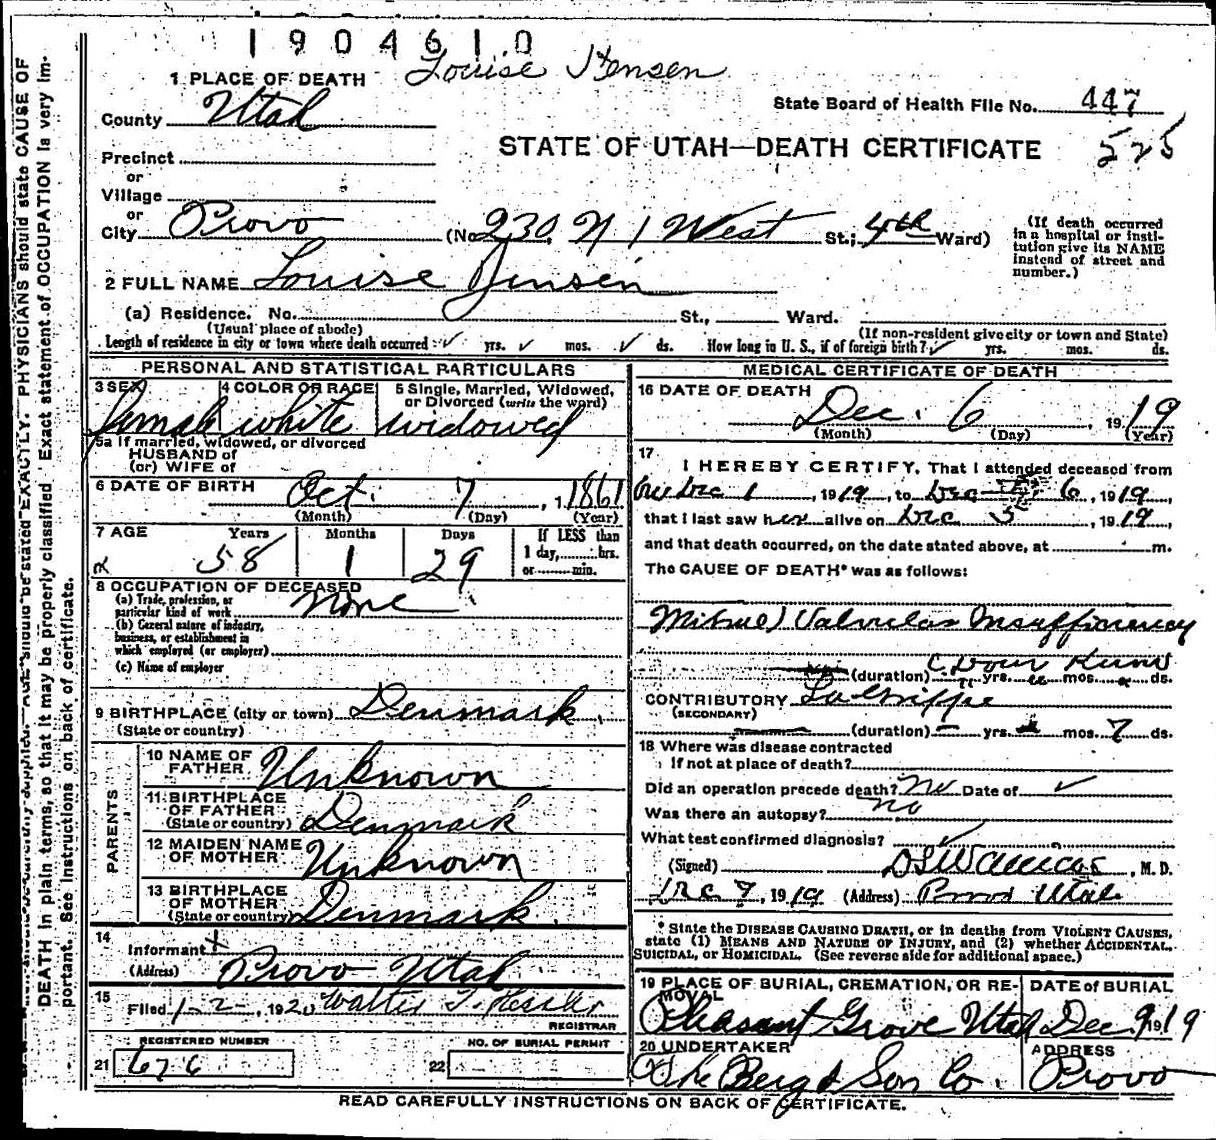 1904610
Louise Hensen
1 PLACE OF DEATH
State Board of Health File No. 447
County Utah
STATE OF UTAH—DEATH CERTIFICATE
525
Precinct
or
Village
or
City Provo (No 230 N 1 West St.; 4th Ward)
(If death occurred in a hospital or insti-
tution give its NAME
instead of street and
number.)
2 FULL NAME Louise Jensen
(a) Residence. No. St., Ward.
(Usual place of abode) (If non-resident give city or town and State)
Length of residence in city or town where death occurred yrs. mos. ds. How long in U. S., if of foreign birth? yrs. mos. ds.
PERSONAL AND STATISTICAL PARTICULARS
3 SEX 4 COLOR OR RACE 5 Single, Married, Widowed,
or Divorced (write the word)
female white widowed
5a If married, widowed, or divorced
HUSBAND of
(or) WIFE of
6 DATE OF BIRTH Oct. 7, 1861
(Month) (Day) (Year)
7 AGE Years Months Days If LESS than
1 day, hrs.
or min.
58 1 29
8 OCCUPATION OF DECEASED
(a) Trade, profession, or
particular kind of work none
(b) General nature of industry,
business, or establishment in
which employed (or employer)
(c) Name of employer
9 BIRTHPLACE (city or town) Denmark.
(State or country)
PARENTS
10 NAME OF
FATHER Unknown
11 BIRTHPLACE
OF FATHER
(State or country) Denmark
12 MAIDEN NAME
OF MOTHER Unknown
13 BIRTHPLACE
OF MOTHER
(State or country) Denmark.
14 Informant
(Address) Provo Utah
15 Filed 1-2-, 1920 Walter T.
REGISTRAR
REGISTERED NUMBER
21 676
NO. OF BURIAL PERMIT
22
MEDICAL CERTIFICATE OF DEATH
16 DATE OF DEATH
Dec. 6, 1919
(Month) (Day) (Year)
17
I HEREBY CERTIFY, That I attended deceased from
Dec 1, 1919, to Dec 6, 1919,
that I last saw her alive on Dec 5, 1919,
and that death occurred, on the date stated above, at m.
The CAUSE OF DEATH* was as follows:
Mitral Valvular Insufficiency
(duration) yrs. mos. ds.
CONTRIBUTORY La Grippe
(SECONDARY)
(duration) yrs. mos. 7 ds.
18 Where was disease contracted
If not at place of death?
Did an operation precede death? No Date of
Was there an autopsy? no
What test confirmed diagnosis?
(Signed) , M. D.
Dec 7, 1919 (Address) Provo Utah
* State the DISEASE CAUSING DEATH, or in deaths from VIOLENT CAUSES,
state (1) MEANS AND NATURE OF INJURY, and (2) whether ACCIDENTAL,
SUICIDAL, or HOMICIDAL. (See reverse side for additional space.)
19 PLACE OF BURIAL, CREMATION, OR RE-
MOVAL
Pleasant Grove Utah
DATE of BURIAL
Dec 9 1919
20 UNDERTAKER
The Berg & Son Co.
ADDRESS
Provo
READ CAREFULLY INSTRUCTIONS ON BACK OF CERTIFICATE.
PHYSICIANS should state CAUSE OF
DEATH in plain terms, so that it may be properly classified. Exact statement of OCCUPATION is very im-
portant. See instructions on back of certificate.